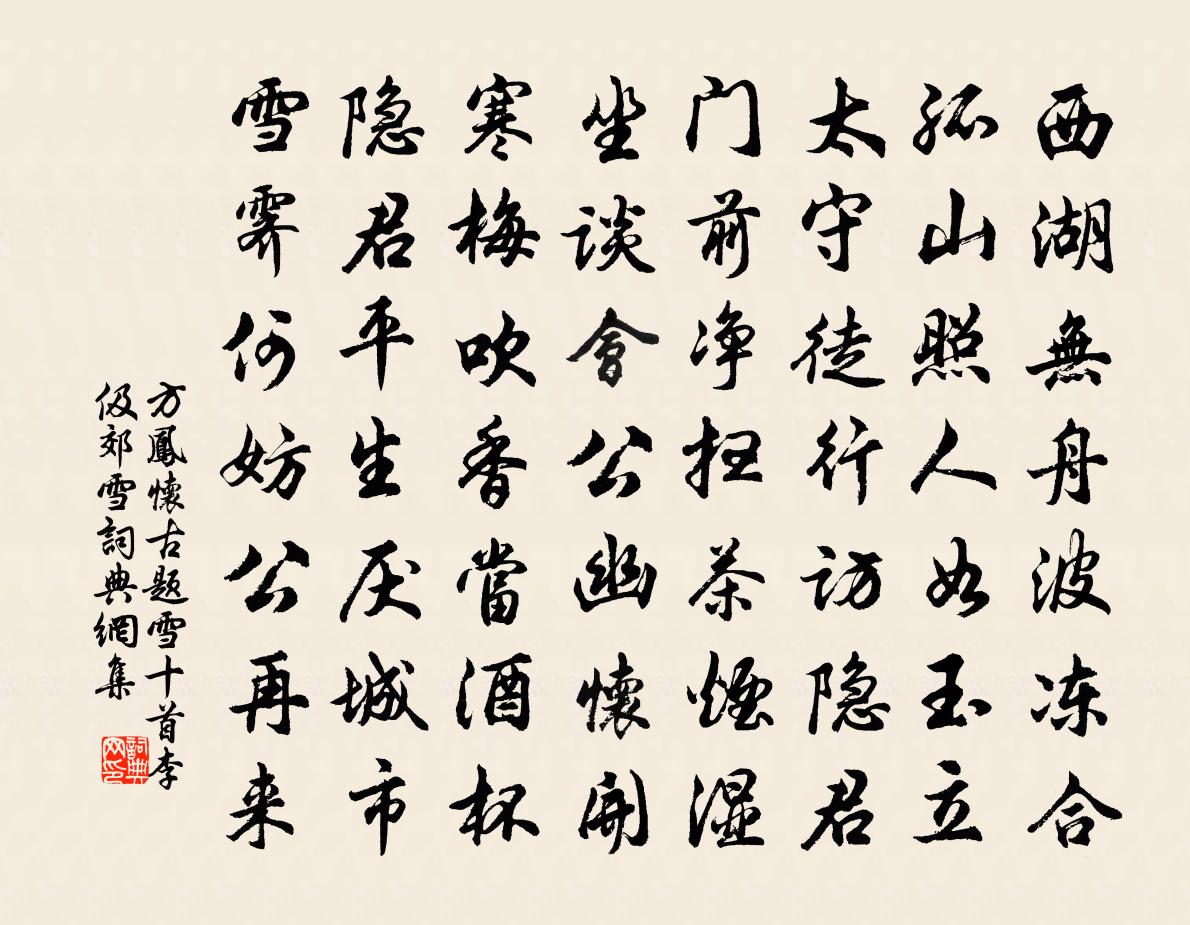 西湖無舟波冻合
孤山照人如玉立
太守徒行访隐君
门前净扫茶煙湿
坐谈會公幽懷開
寒梅吹香當酒杯
隐君平生厌城市
雪霁何妨公再来
方鳳懷古题雪十首李
伋郊雪詞典網集
詞典網印